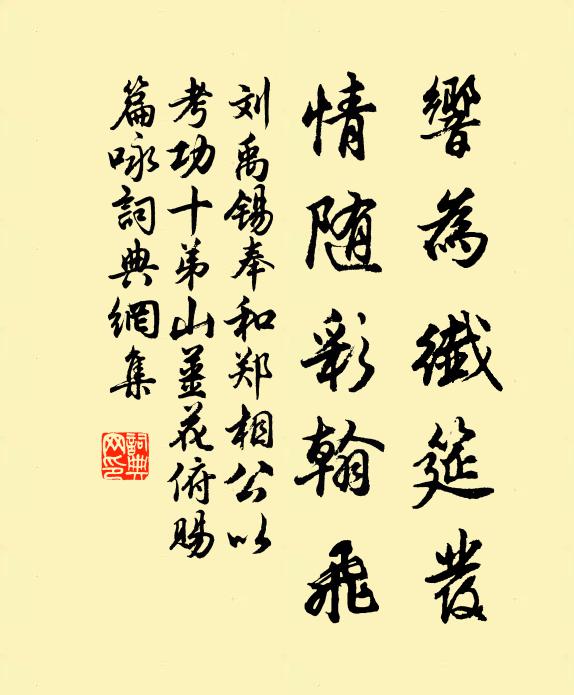 響為纖筵發
情随彩翰飛
刘禹锡奉和郑相公以
考功十弟山薑花俯赐
篇咏詞典網集
詞典
网印